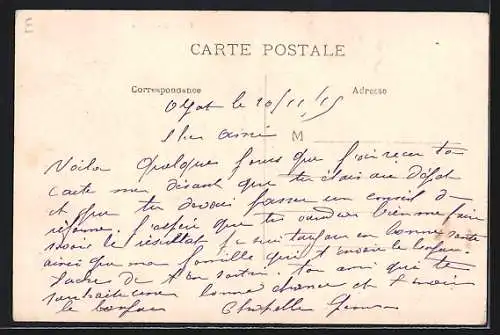 CARTE POSTALE
Correspondance
Adresse
le 10/11/15
Cher ami
M
Voila quelques jours que j'ai reçu ta
carte me disant que tu étais au dépot
et que tu devais passer un conseil de
réforme. J'espère que tu voudras bien me faire
savoir le résultat je suis toujours en bonne santé
ainsi que ma famille qui t'envoie le bonjour
de t'en sortir. ton ami qui te
souhaite bonne chance et t'envoie
le bonjour Chapelle